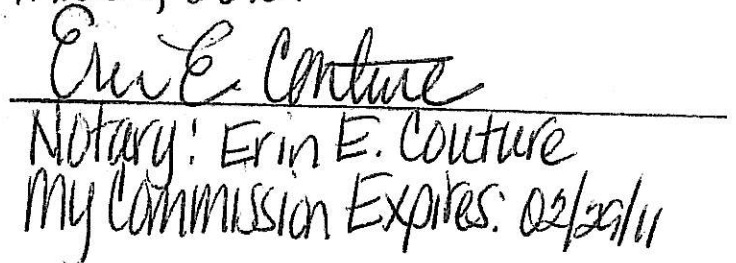 Erin E. Couture
Notary: Erin E. Couture
My Commission Expires: 02/29/11